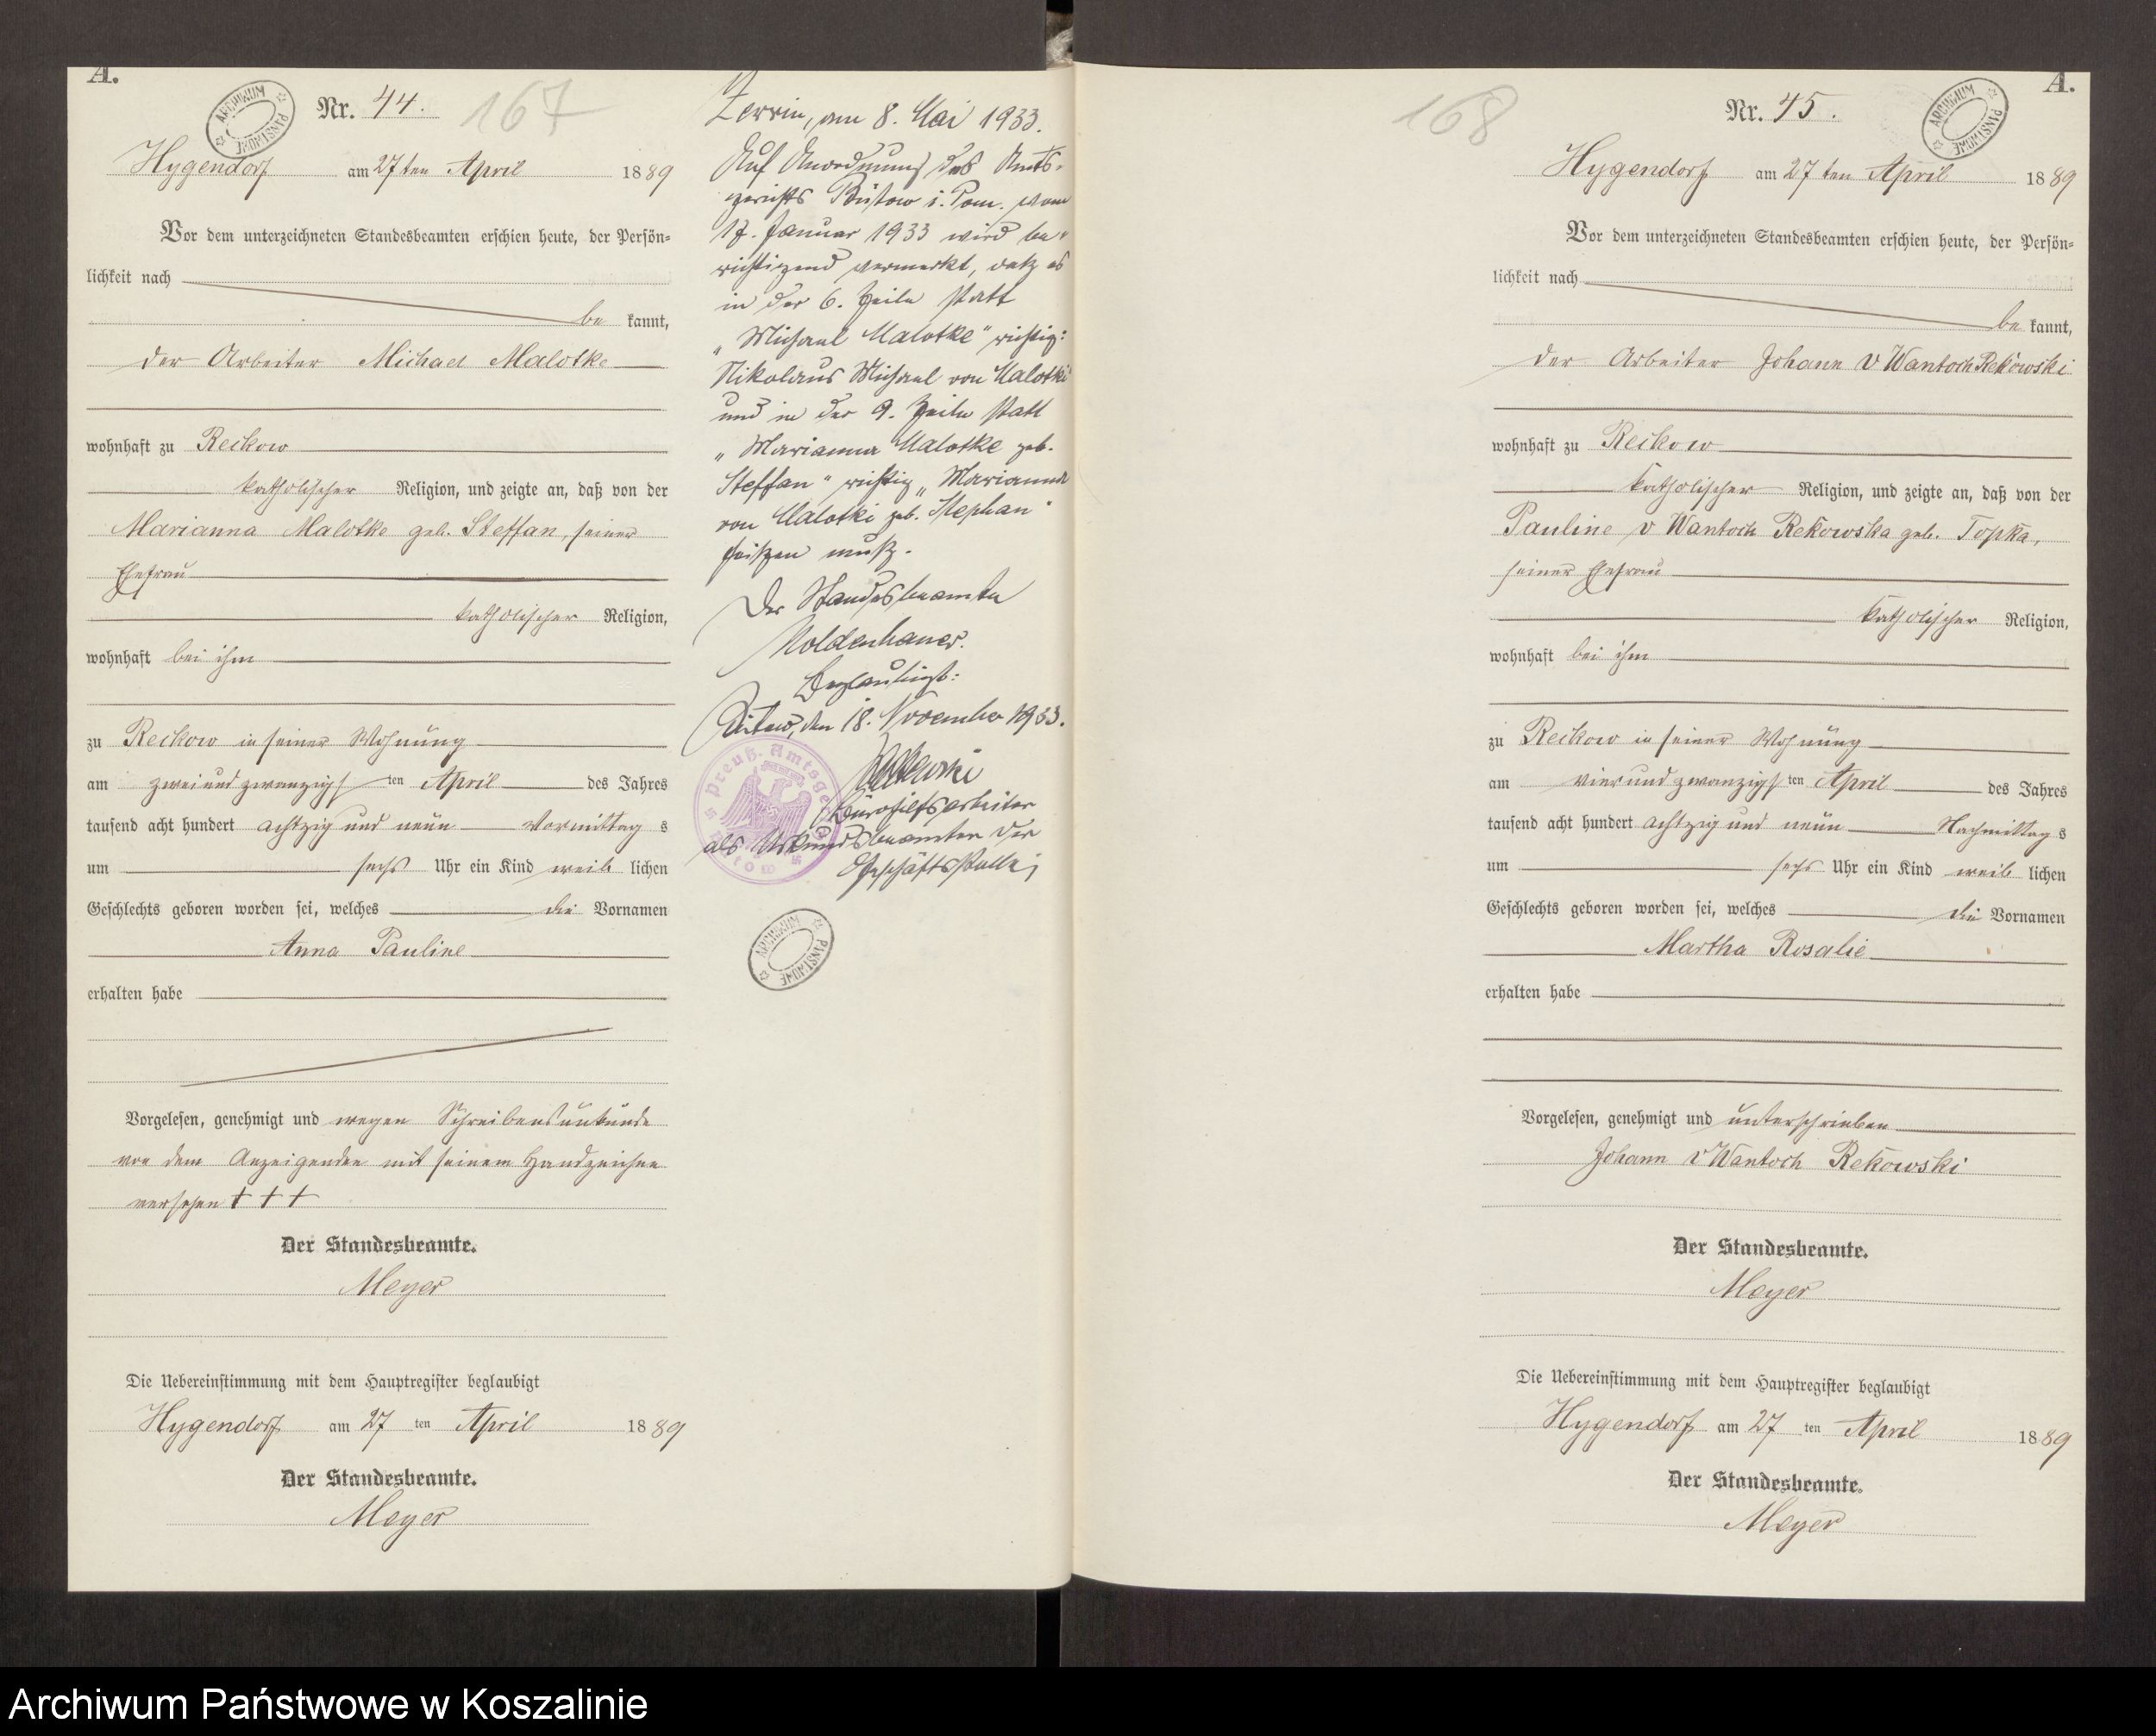 A.
ARCHIWUM PAŃSTWOWE
Nr. 44.
167
Hygendorf am 27ten April 1889
Vor dem unterzeichneten Standesbeamten erschien heute, der Persön-
lichkeit nach
be kannt,
der Arbeiter Michael Malotke
wohnhaft zu Reckow
katholischer Religion, und zeigte an, daß von der
Marianna Malotke geb. Steffan, seiner
Ehefrau
katholischer Religion,
wohnhaft bei ihm
zu Reckow in seiner Wohnung
am zwei und zwanzigsten April des Jahres
tausend acht hundert achtzig und neun Vormittags
um sechs Uhr ein Kind weiblichen
Geschlechts geboren worden sei, welches die Vornamen
Anna Pauline
erhalten habe
Vorgelesen, genehmigt und wegen Schreibensunkunde
von dem Anzeigenden mit seinem Handzeichen
versehen † † †
Der Standesbeamte.
Meyer
Die Uebereinstimmung mit dem Hauptregister beglaubigt
Hygendorf am 27 ten April 1889
Der Standesbeamte.
Meyer
Zerrin, am 8. Mai 1933.
Auf Anordnung des Amts-
gerichts Bütow i. Pom. vom
17. Januar 1933 wird be-
richtigend vermerkt, daß es
in der 6. Zeile statt
„Michael Malotke" richtig:
Nikolaus Michael von Malotki
und in der 9. Zeile statt
„Marianna Malotke geb.
Steffan" richtig „Marianna
von Malotki geb. Stephan"
heißen muß.
Der Standesbeamte
Moldenhauer.
Beglaubigt:
Bütow, den 18. November 1933.
Bürohilfsarbeiter
als Urkundsbeamter der
Geschäftsstelle;
ARCHIWUM PAŃSTWOWE
168
A.
Nr. 45.
ARCHIWUM PAŃSTWOWE
Hygendorf am 27ten April 1889
Vor dem unterzeichneten Standesbeamten erschien heute, der Persön-
lichkeit nach
be kannt,
der Arbeiter Johann v Wantoch Rekowski
wohnhaft zu Reckow
katholischer Religion, und zeigte an, daß von der
Pauline v Wantoch Rekowska geb. Topka,
seiner Ehefrau
katholischer Religion,
wohnhaft bei ihm
zu Reckow in seiner Wohnung
am vier und zwanzigsten April des Jahres
tausend acht hundert achtzig und neun Nachmittags
um sechs Uhr ein Kind weiblichen
Geschlechts geboren worden sei, welches die Vornamen
Martha Rosalie
erhalten habe
Vorgelesen, genehmigt und unterschrieben
Johann v Wantoch Rekowski
Der Standesbeamte.
Meyer
Die Uebereinstimmung mit dem Hauptregister beglaubigt
Hygendorf am 27 ten April 1889
Der Standesbeamte.
Meyer
Archiwum Państwowe w Koszalinie